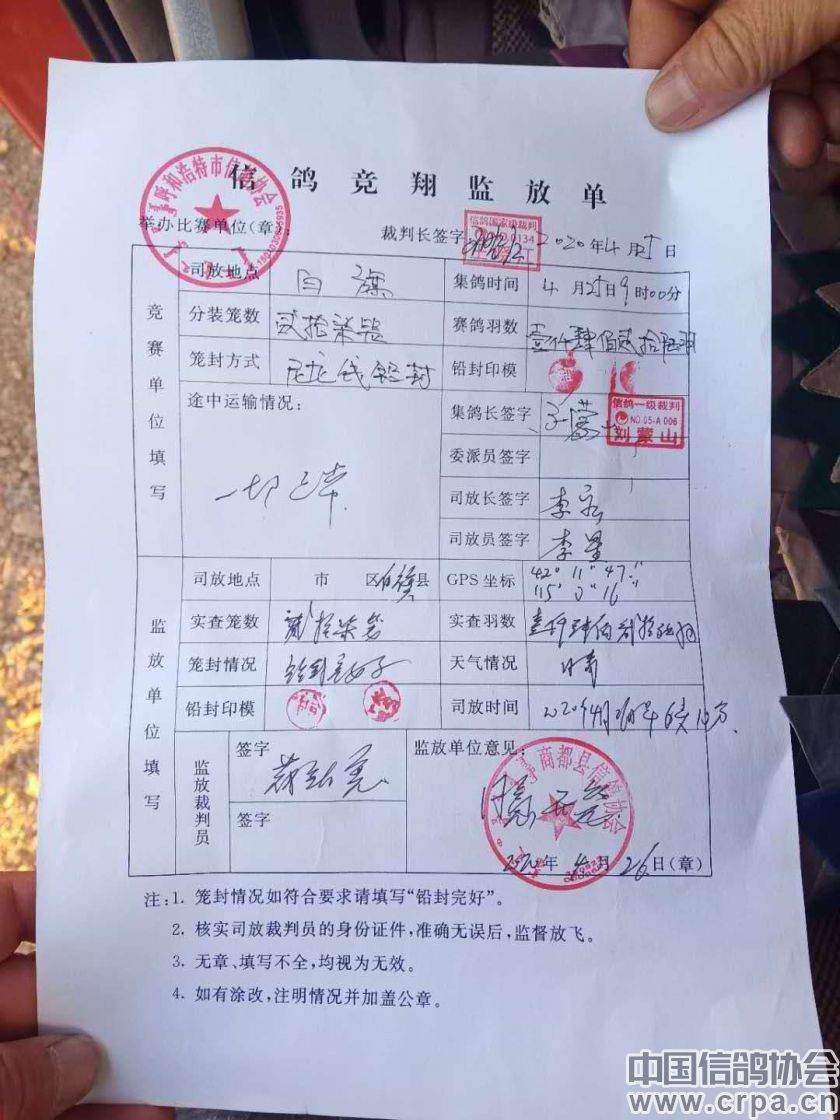 信鸽竞翔监放单
呼和浩特市信鸽协会
信鸽国家级裁判
举办比赛单位(章): 裁判长签字 2020年4月25日
司放地点 白旗 集鸽时间 4月25日9时00分
竞赛单位填写
分装笼数 贰拾柒笼 赛鸽羽数 壹仟肆佰贰拾陆羽
笼封方式 尼龙线铅封 铅封印模
途中运输情况: 集鸽长签字
信鸽一级裁判
NO.05-A 006
刘蒙山
委派员签字
一切正常
司放长签字 李宏
司放员签字 李星
司放地点 市 区 白旗县 GPS坐标 42° 11" 47"
115° 0" 16"
监放单位填写
实查笼数 贰拾柒笼 实查羽数
笼封情况 铅封完好 天气情况 晴
铅封印模 司放时间
监放裁判员 签字 监放单位意见:
商都县信鸽协会
同意开笼
签字
2020年4月26日(章)
注:1. 笼封情况如符合要求请填写“铅封完好”。
2. 核实司放裁判员的身份证件,准确无误后,监督放飞。
3. 无章、填写不全,均视为无效。
4. 如有涂改,注明情况并加盖公章。
中国信鸽协会
www.crpa.cn